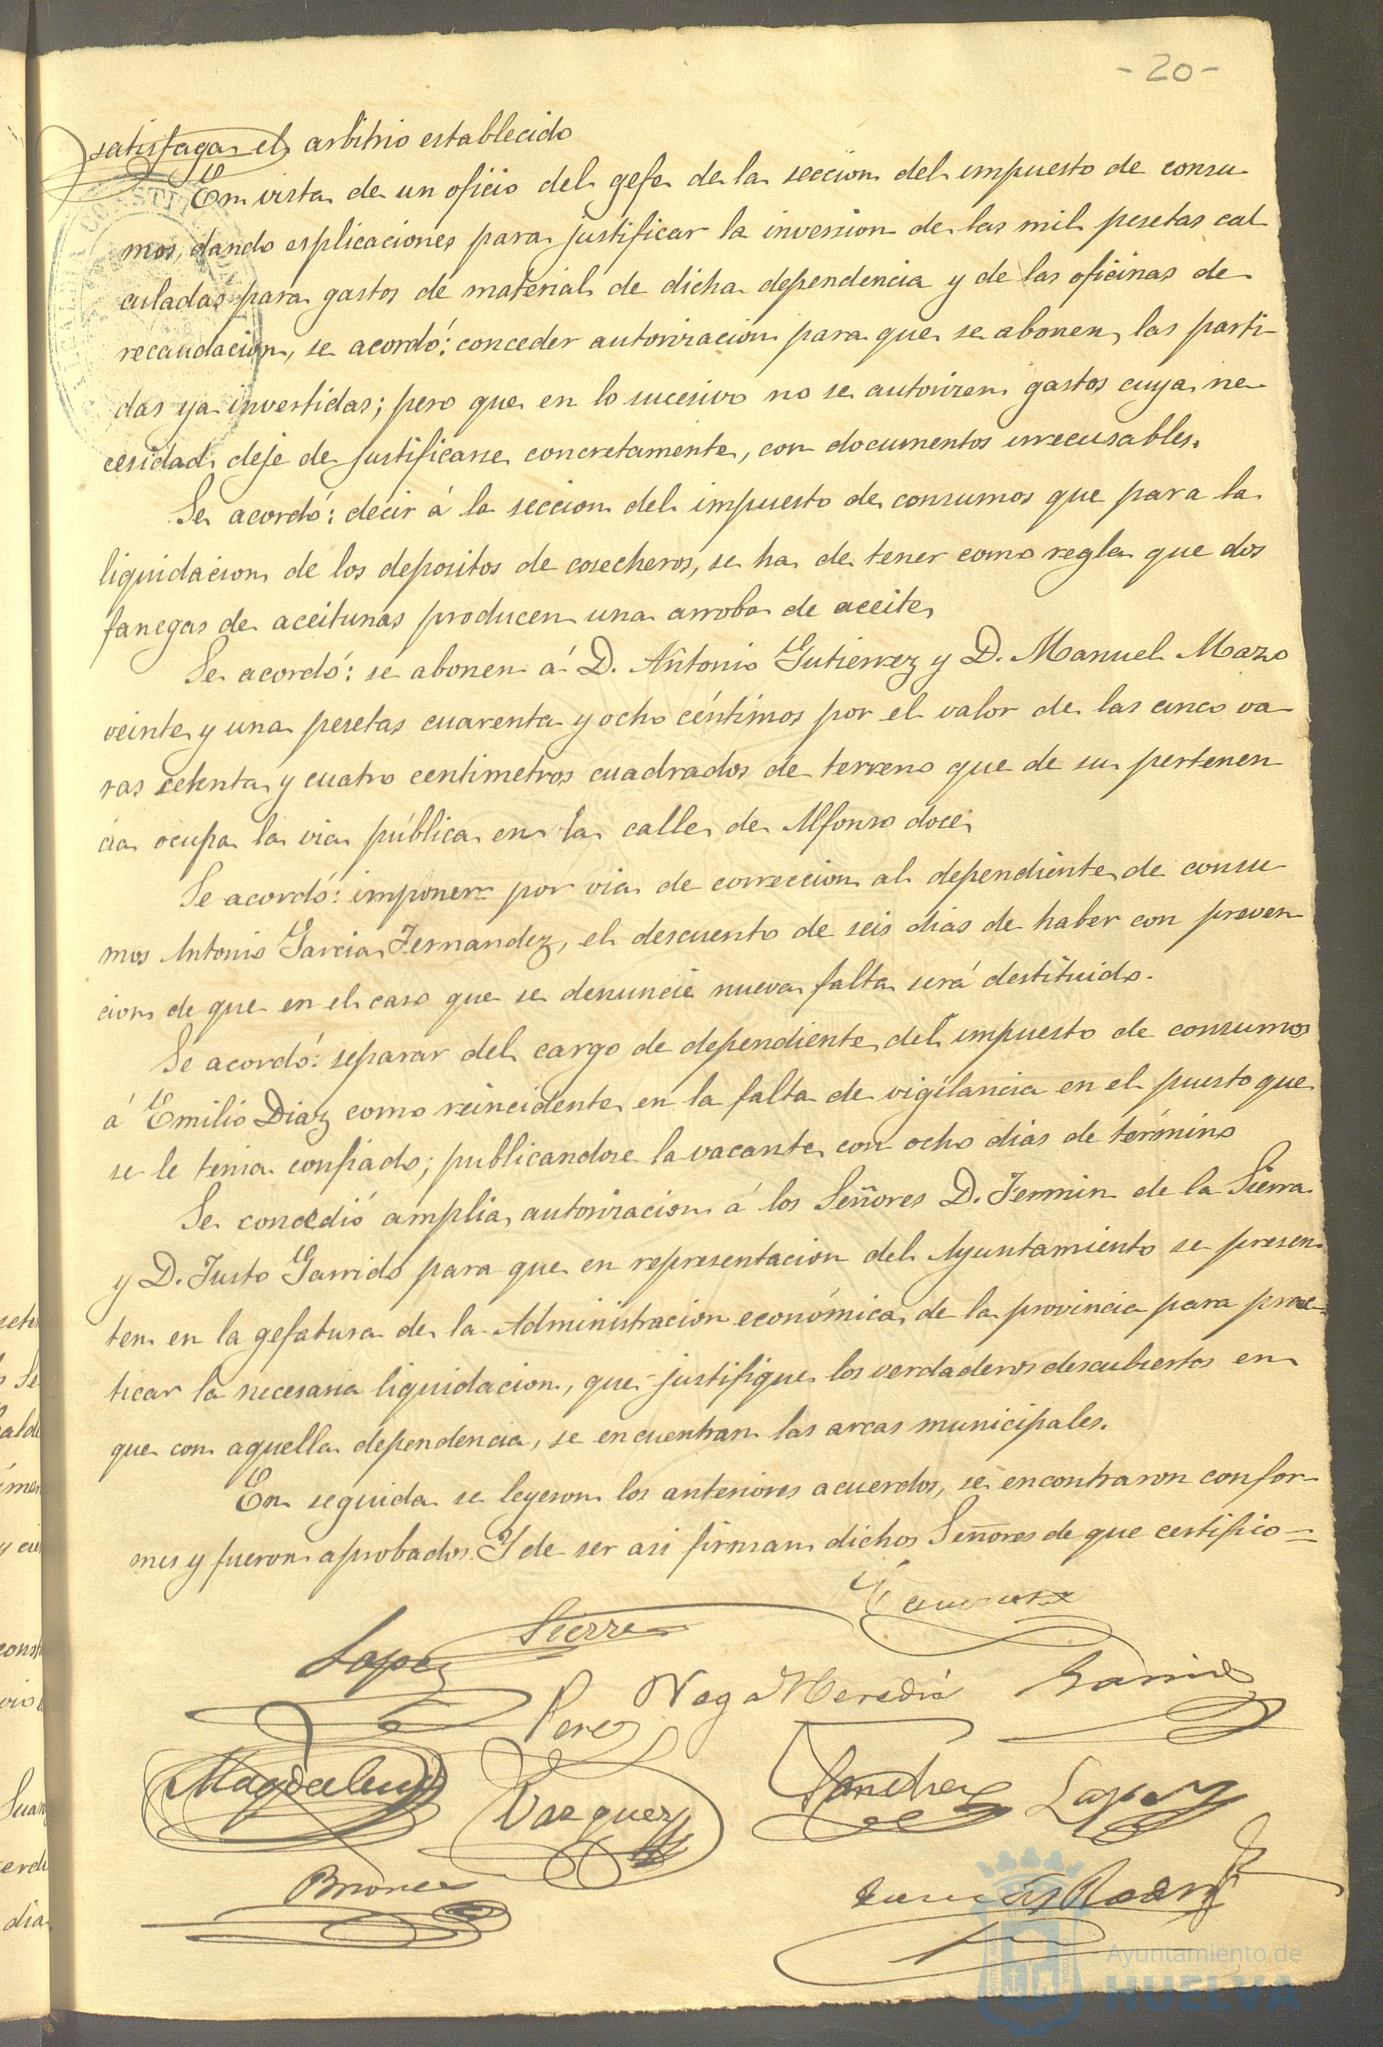 - 20 -
satisfaga el arbitrio establecido
En vista de un oficio del gefe de la seccion del impuesto de consu
mos, dando esplicaciones para justificar la inversion de las mil pesetas cal
culadas para gastos de material de dicha dependencia y de las oficinas de
recaudacion, se acordó: conceder autorizacion para que se abonen las parti-
das ya invertidas; pero que en lo sucesivo no se autorizen gastos cuya ne
cesidad deje de justificarse concretamente, con documentos irrecusables.
Se acordó: decir á la seccion del impuesto de consumos que para la
liquidacion de los depositos de cosecheros, se ha de tener como regla que dos
fanegas de aceitunas producen una arroba de aceite
Se acordó: se abonen á D. Antonio Gutierrez y D. Manuel Mazo
veinte y una pesetas cuarenta y ocho céntimos por el valor de las cinco va
ras setenta y cuatro centimetros cuadrados de terreno que de su pertenen
cia ocupa la via pública en la calle de Alfonso doce
Se acordó: imponer por via de correccion al dependiente de consu
mos Antonio Garcia Fernandez, el descuento de seis dias de haber con preven
cion de que en el caso que se denuncie nueva falta será destituido.
Se acordó: separar del cargo de dependiente del impuesto de consumos
á Emilio Diaz como reincidente en la falta de vigilancia en el puesto que
se le tenia confiado; publicandose la vacante con ocho dias de término
Se concedió amplia autorizacion á los Señores D. Fermin de la Sierra
y D. Justo Garrido para que en representacion del Ayuntamiento se presen
ten en la gefatura de la Administracion económica de la provincia para prac-
ticar la necesaria liquidacion, que justifique los verdaderos descubiertos en
que con aquella dependencia, se encuentran las arcas municipales.
En seguida se leyeron los anteriores acuerdos, se encontraron confor-
mes y fueron aprobados. Y de ser asi firman dichos Señores de que certifico=
Lopez Sierra
Perez Vega Heredia Garrido
Magdalena Vazquez Sanchez Lopez
Ayuntamiento de
HUELVA